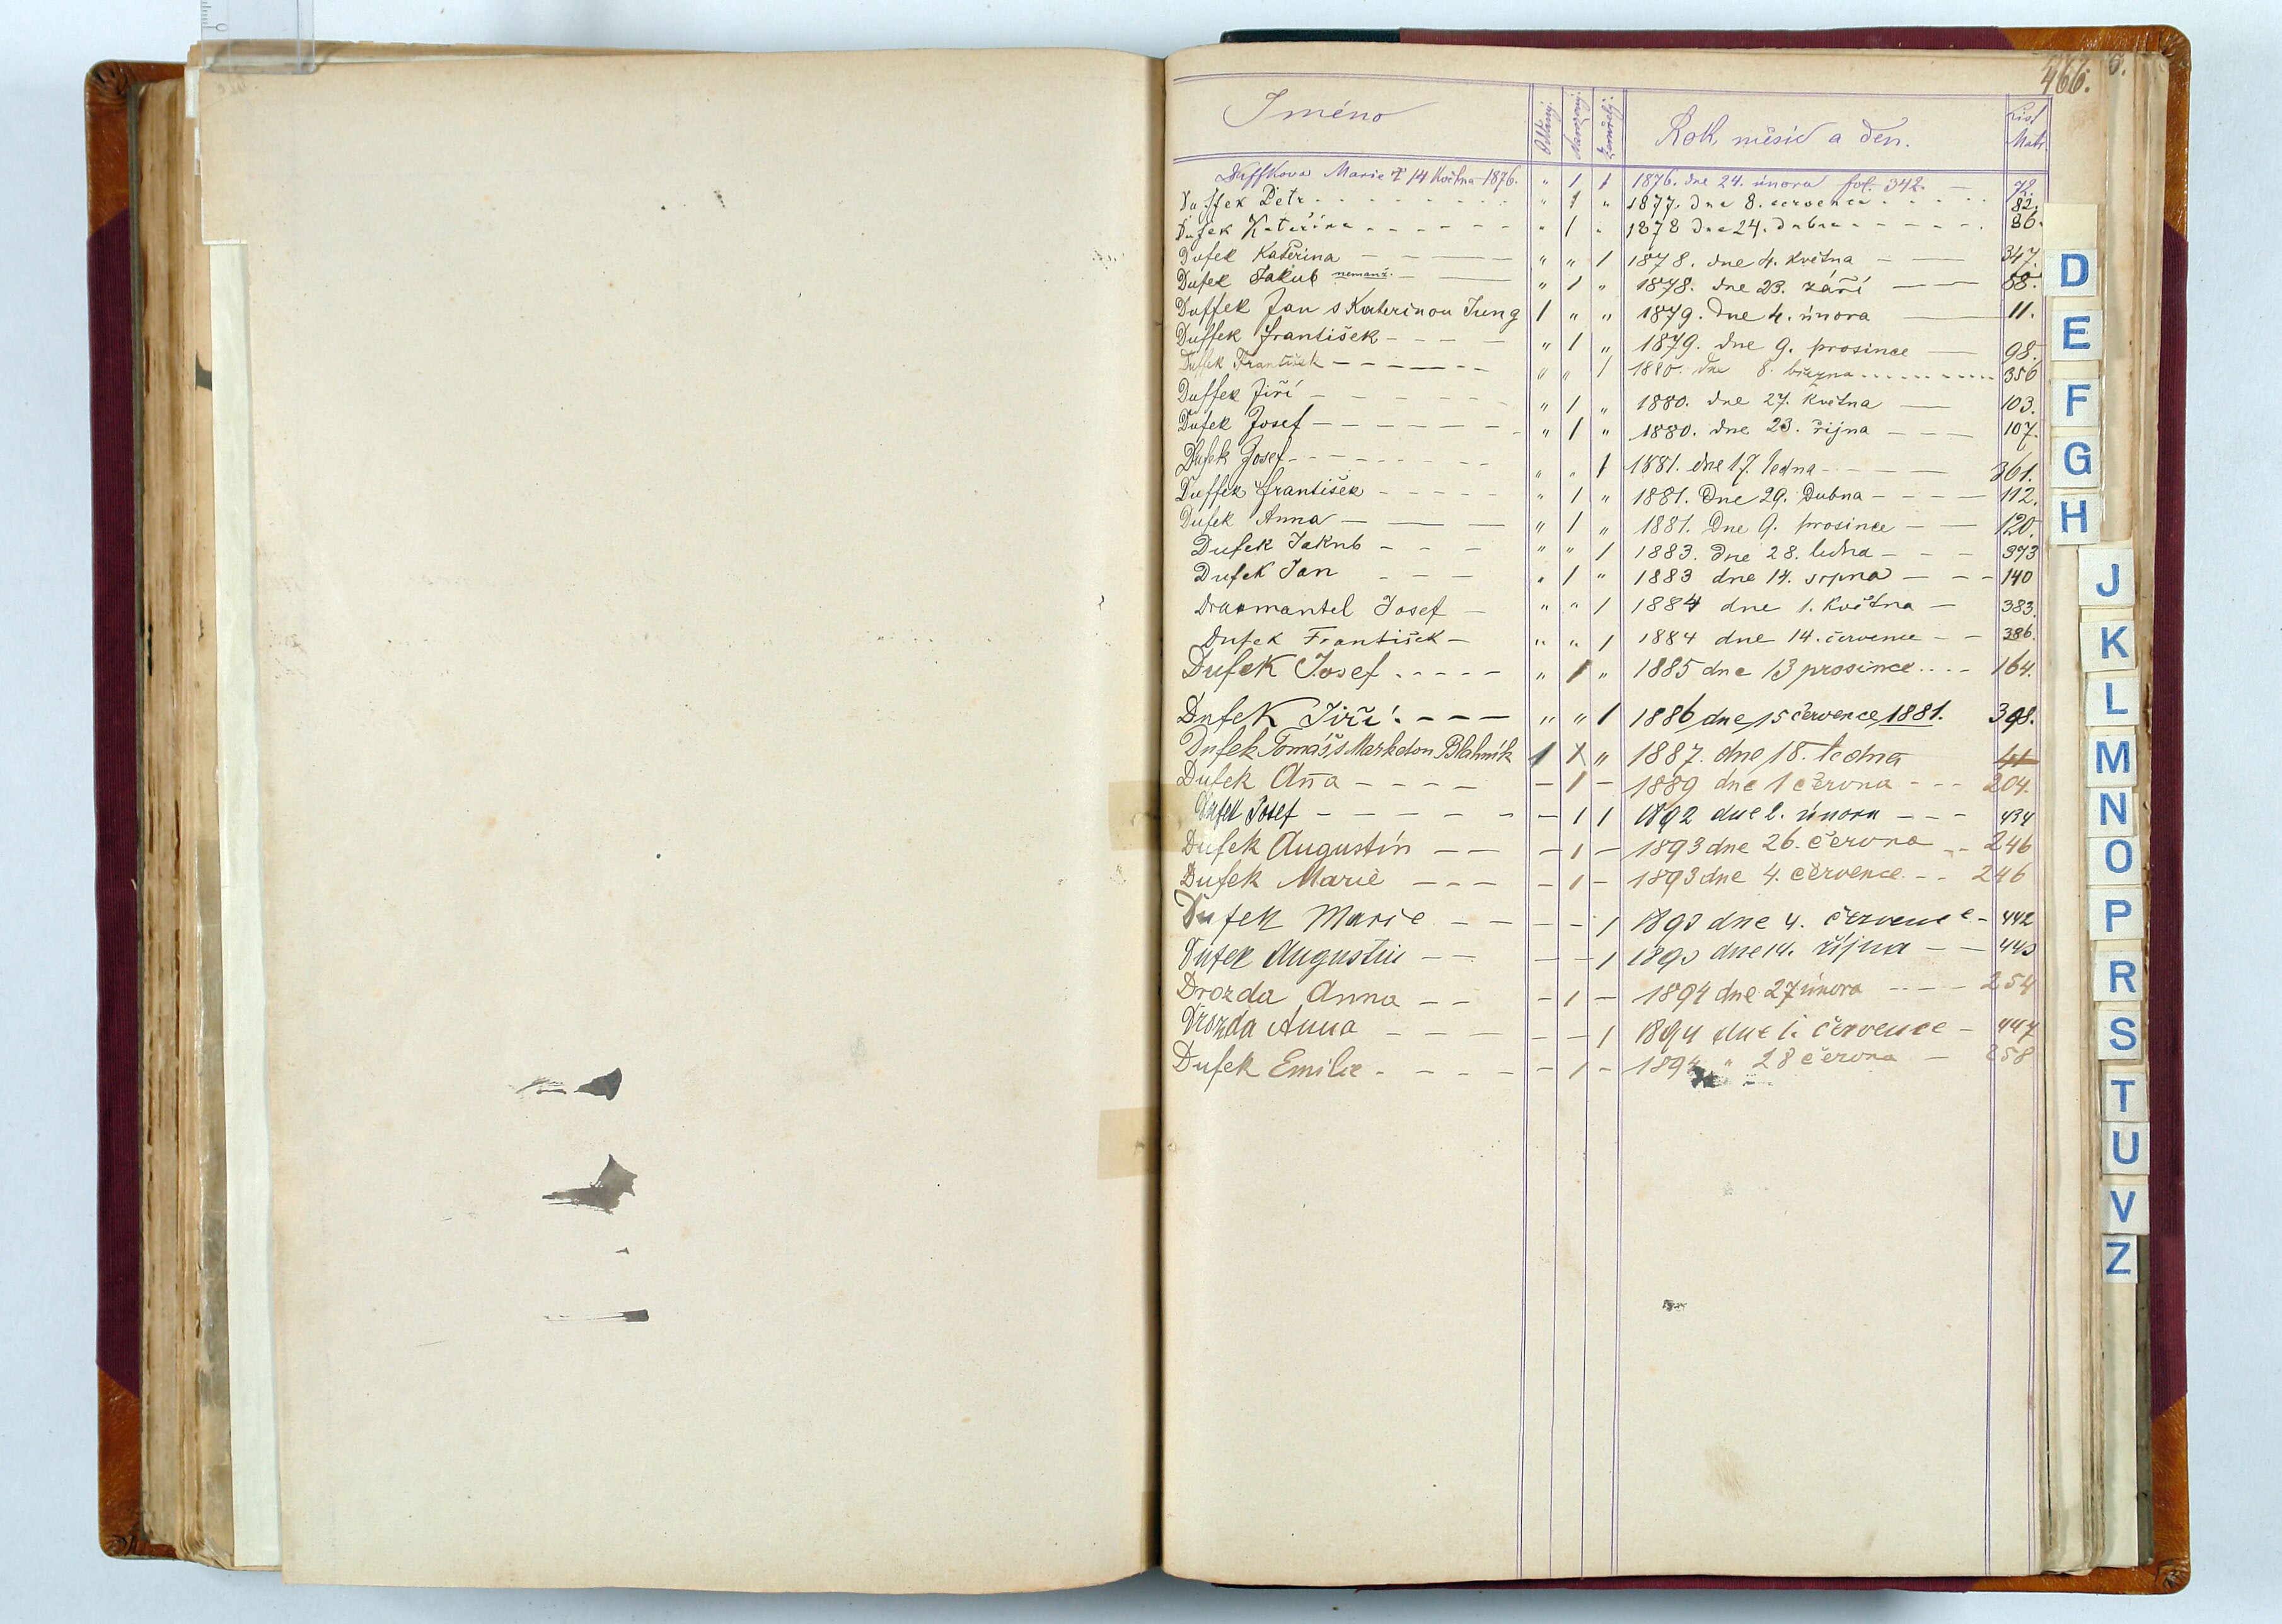 466.
Jméno Oddaný. Narozený. Zemřelý. Rok, měsíc a den. List Matr.
Duffkova Marie † 14 Května 1876. " 1 1 1876. dne 24. února fol. 342. — 72.
Duffek Petr " 1 " 1877. dne 8. července 82.
Dufek Kateřina " 1 " 1878 dne 24. dubna 86.
Dufek Kateřina " " 1 1878. dne 4. května 347.
Dufek Jakub nemanž. " 1 " 1878. dne 23. září 88.
Duffek Jan s Katerinou Jung 1 " " 1879. dne 4. února 11.
Duffek František " 1 " 1879. dne 9. prosince 98.
Duffek František " " 1 1880. dne 8. března 356
Duffek Jiří " 1 " 1880. dne 27. května 103.
Dufek Josef " 1 " 1880. dne 23. října 107.
Dufek Josef " " 1 1881. dne 17. ledna 361.
Duffek František " 1 " 1881. Dne 29. Dubna 112.
Dufek Anna " 1 " 1881. Dne 9. prosince 120.
Dufek Jakub " " 1 1883. Dne 28. ledna 373
Dufek Jan " 1 " 1883 dne 14. srpna 140
Josef " " 1 1884 dne 1. Května 383.
Dufek František " " 1 1884 dne 14. července 386.
Dufek Josef " 1 " 1885 dne 13 prosince 164.
Dufek Jiří " " 1 1886 dne 15 července 1881. 398.
Dufek Tomáš s Marketou Blahnik 1 1 " 1887. dne 18. ledna 41
Dufek Aña — 1 — 1889 dne 1 června 204.
Dufek Josef — 1 1 1892 dne 2. února 434
Dufek Augustin — 1 — 1893 dne 26. června 246
Dufek Marie — 1 — 1893 dne 4. července 246
Dufek Marie — — 1 1893 dne 4. července 442
Dufek Augustin — — 1 1893 dne 14. října 443
Drozda Anna — 1 — 1894 dne 27 února 254
Drozda Anna — — 1 1894 dne 1. července 447
Dufek Emilie — 1 — 1894 " 28 června 258
D
E
F
G
H
J
K
L
M
N
O
P
R
S
T
U
V
Z